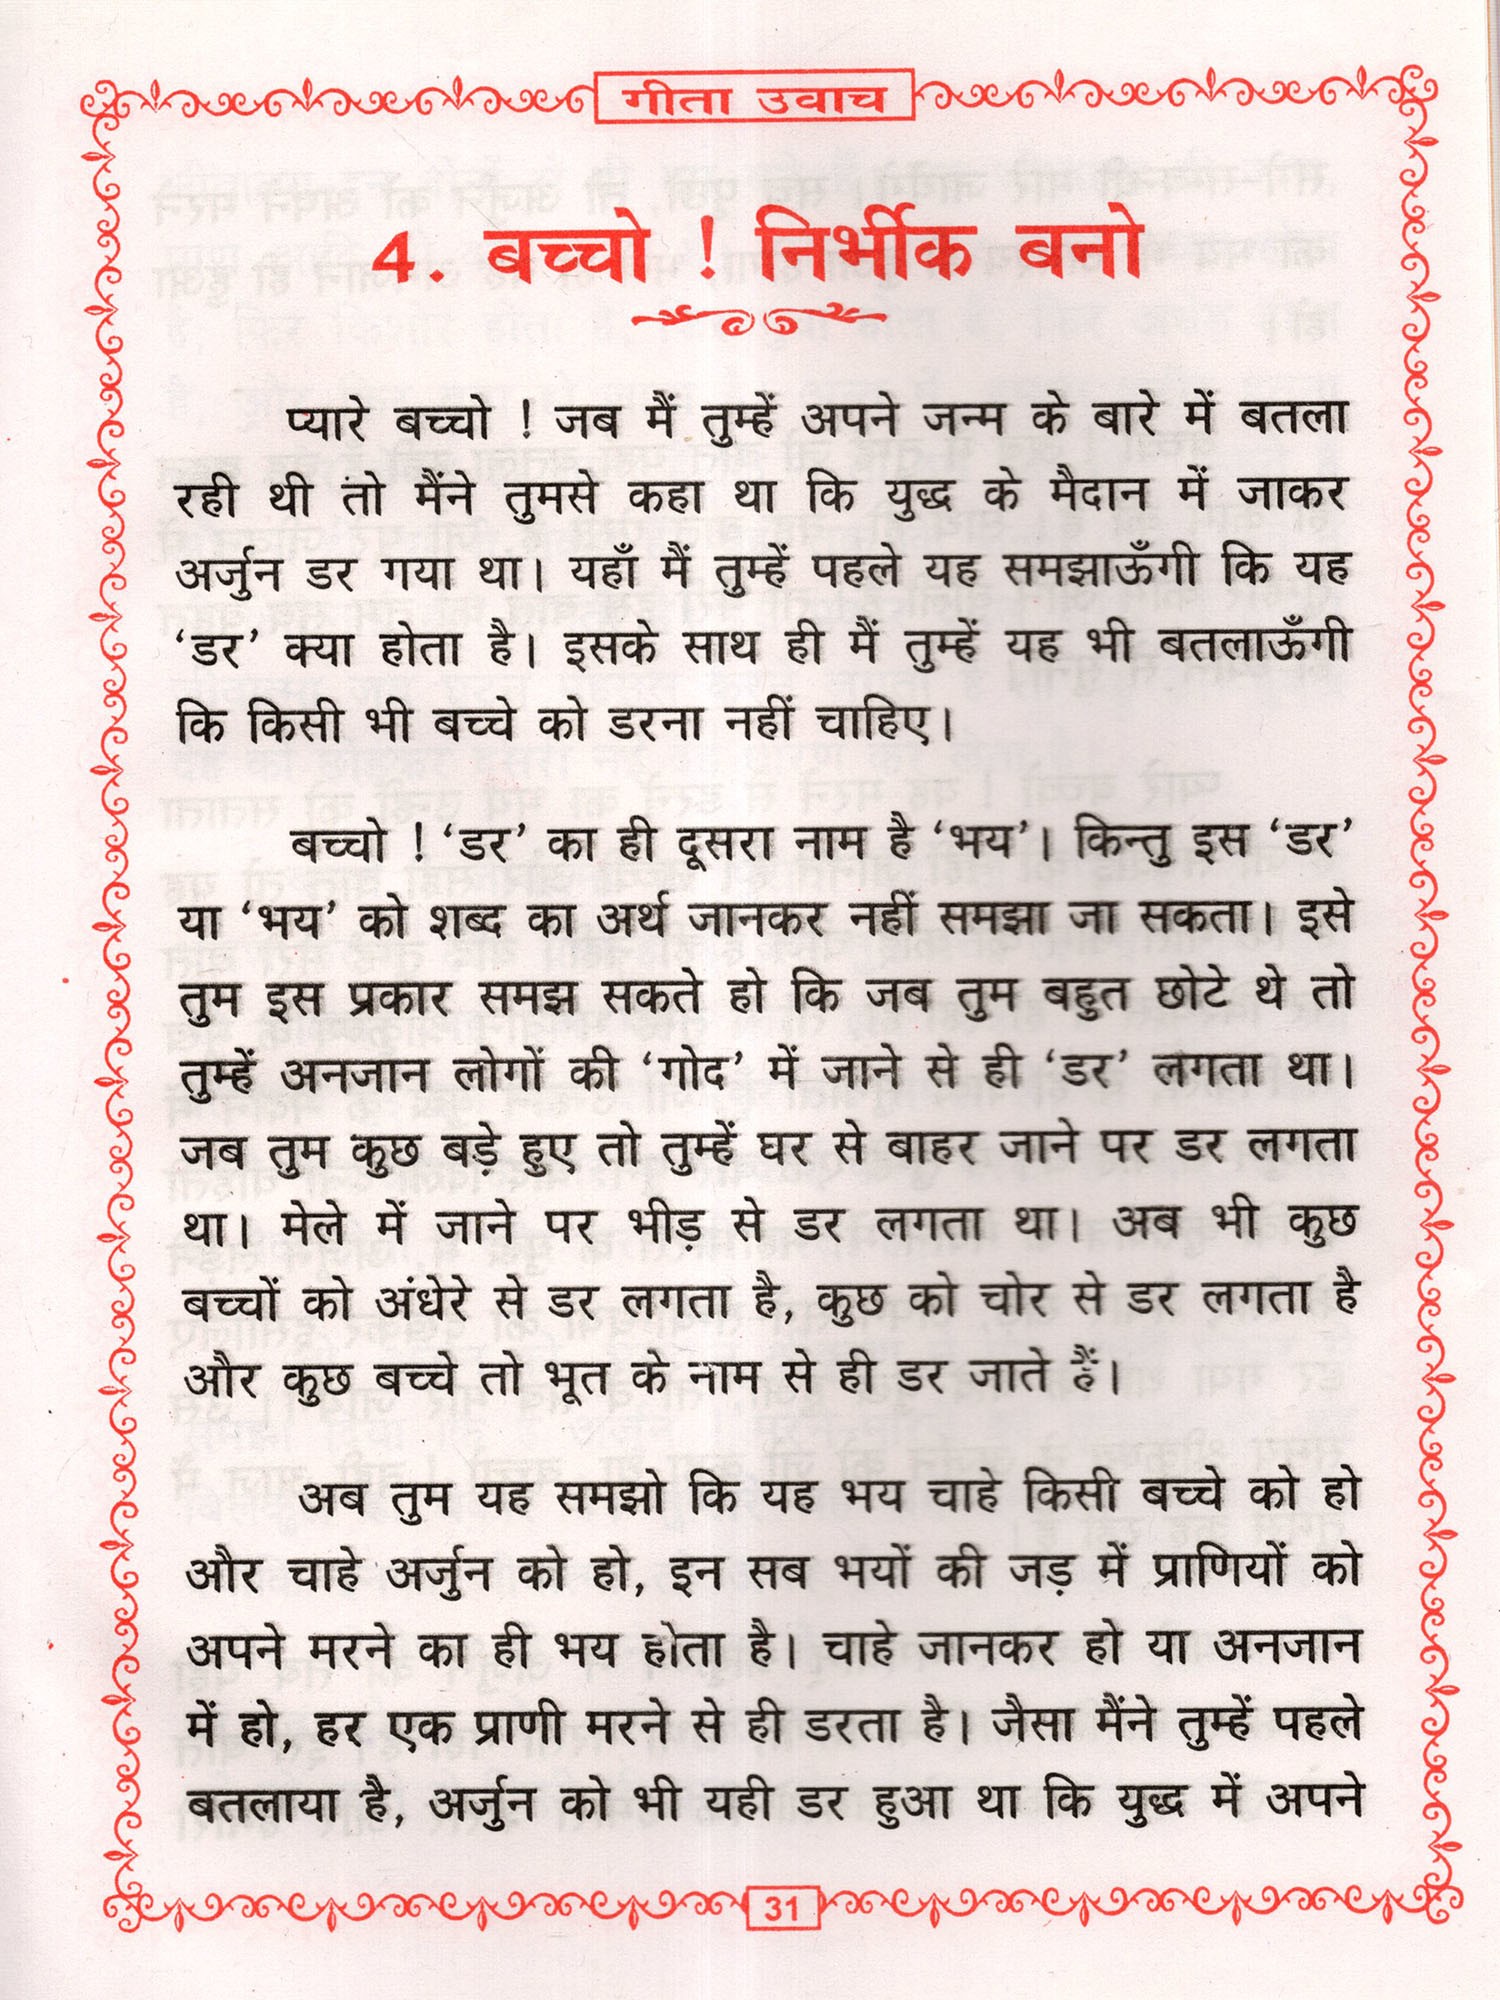 गीता उवाच
4. बच्चो ! निर्भीक बनो
प्यारे बच्चो ! जब मैं तुम्हें अपने जन्म के बारे में बतला
रही थी तो मैंने तुमसे कहा था कि युद्ध के मैदान में जाकर
अर्जुन डर गया था। यहाँ मैं तुम्हें पहले यह समझाऊँगी कि यह
‘डर’ क्या होता है। इसके साथ ही मैं तुम्हें यह भी बतलाऊँगी
कि किसी भी बच्चे को डरना नहीं चाहिए।
बच्चो ! ‘डर’ का ही दूसरा नाम है ‘भय’। किन्तु इस ‘डर’
या ‘भय’ को शब्द का अर्थ जानकर नहीं समझा जा सकता। इसे
तुम इस प्रकार समझ सकते हो कि जब तुम बहुत छोटे थे तो
तुम्हें अनजान लोगों की ‘गोद’ में जाने से ही ‘डर’ लगता था।
जब तुम कुछ बड़े हुए तो तुम्हें घर से बाहर जाने पर डर लगता
था। मेले में जाने पर भीड़ से डर लगता था। अब भी कुछ
बच्चों को अंधेरे से डर लगता है, कुछ को चोर से डर लगता है
और कुछ बच्चे तो भूत के नाम से ही डर जाते हैं।
अब तुम यह समझो कि यह भय चाहे किसी बच्चे को हो
और चाहे अर्जुन को हो, इन सब भयों की जड़ में प्राणियों को
अपने मरने का ही भय होता है। चाहे जानकर हो या अनजान
में हो, हर एक प्राणी मरने से ही डरता है। जैसा मैंने तुम्हें पहले
बतलाया है, अर्जुन को भी यही डर हुआ था कि युद्ध में अपने
31